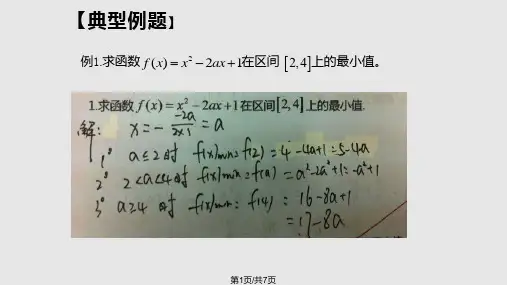 【典型例题】
例1.求函数 f(x) = x² − 2ax + 1在区间 [2,4]上的最小值。
1.求函数 f(x) = x² − 2ax + 1在区间[2,4]上的最小值.
解: x = − -2a/2×1 = a
1° a≤2时 f(x)min=f(2)=4-4a+1=5-4a
2° 2<a<4时 f(x)min=f(a)=a²-2a²+1=-a²+1
3° a≥4时 f(x)min=f(4)=16-8a+1
=17-8a
第1页/共7页